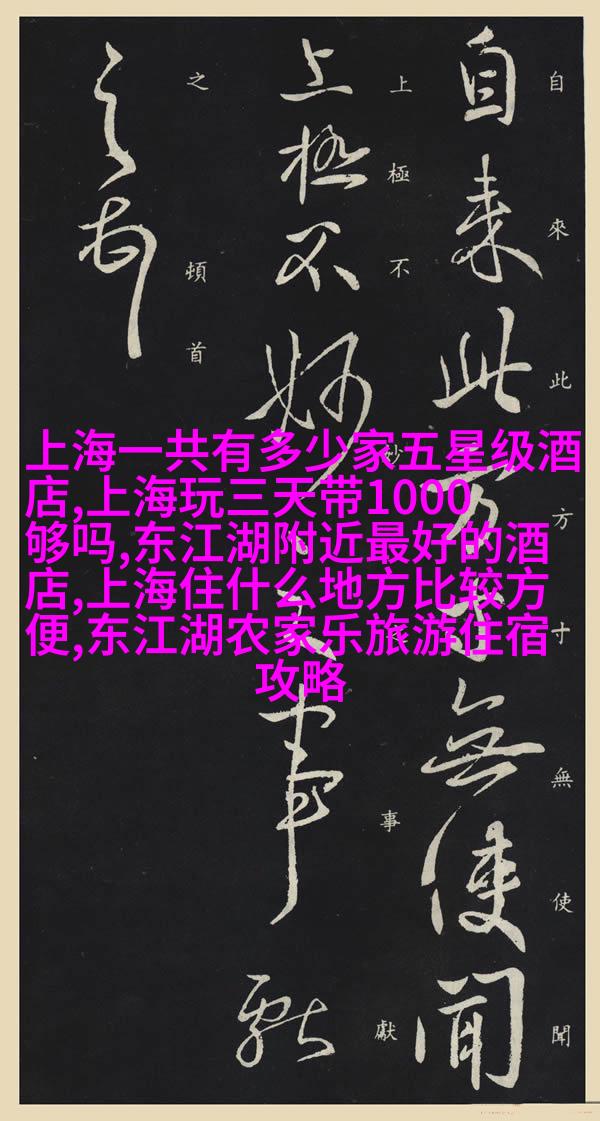 上海一共有多少家五星级酒
店,上海玩三天带1000
够吗,东江湖附近最好的酒
店,上海住什么地方比较方
便,东江湖农家乐旅游住宿
攻略
自來此方寸無使聞
自来此方寸無使聞
上極不妙事獻
上極不妙事獻
之頓首
之頓首